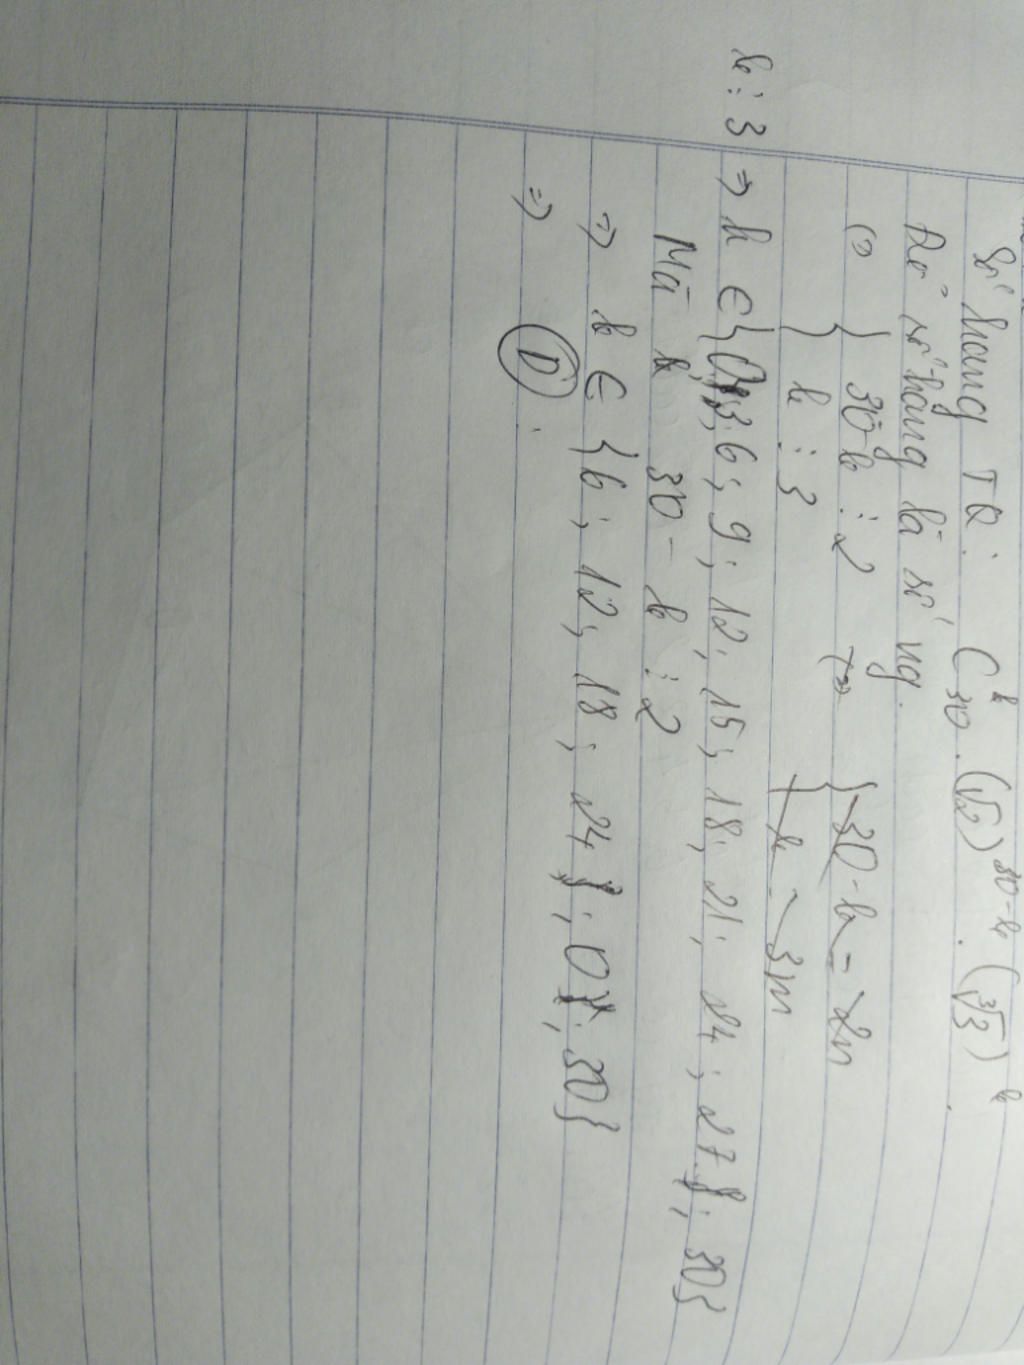 Số hạng TQ: C₃₀ᵏ . (√2)³⁰⁻ᵏ . (∛3)ᵏ .
Để số hạng là số ng.
⇔ { 30-k ⋮ 2 ⇔ { 30-k = 2n
{ k ⋮ 3 { k = 3m
k ⋮ 3 ⇒ k ∈ {0; 3; 6; 9; 12; 15; 18; 21; 24; 27; 30}
Mà 30 - k ⋮ 2
⇒ k ∈ {6; 12; 18; 24; 0; 30}
⇒ D.